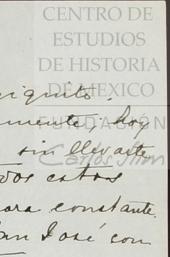 CENTRO DE
ESTUDIOS
DE HISTORIA
DE MEXICO
FUNDACIÓN
Carlos Slim
iquito.
mente; hoy
sin llevarte
dos estos
para constante.
San José con